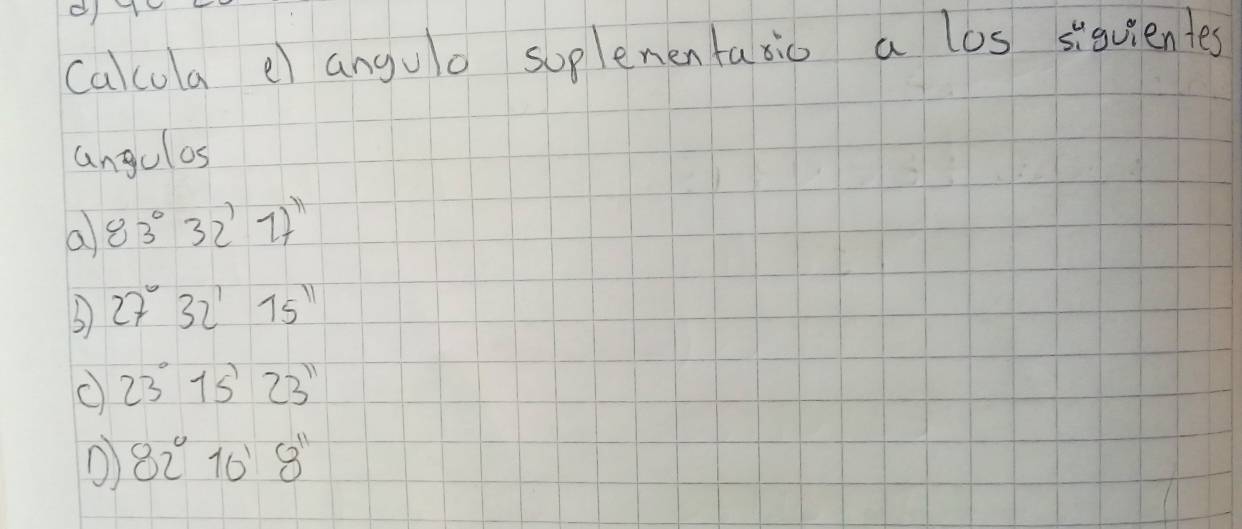 Calcula el angulo suplementario a los siguientes
angulos
a) 83° 32' 17"
b) 27° 32' 15"
c) 23° 15' 23"
D) 82° 16' 8"